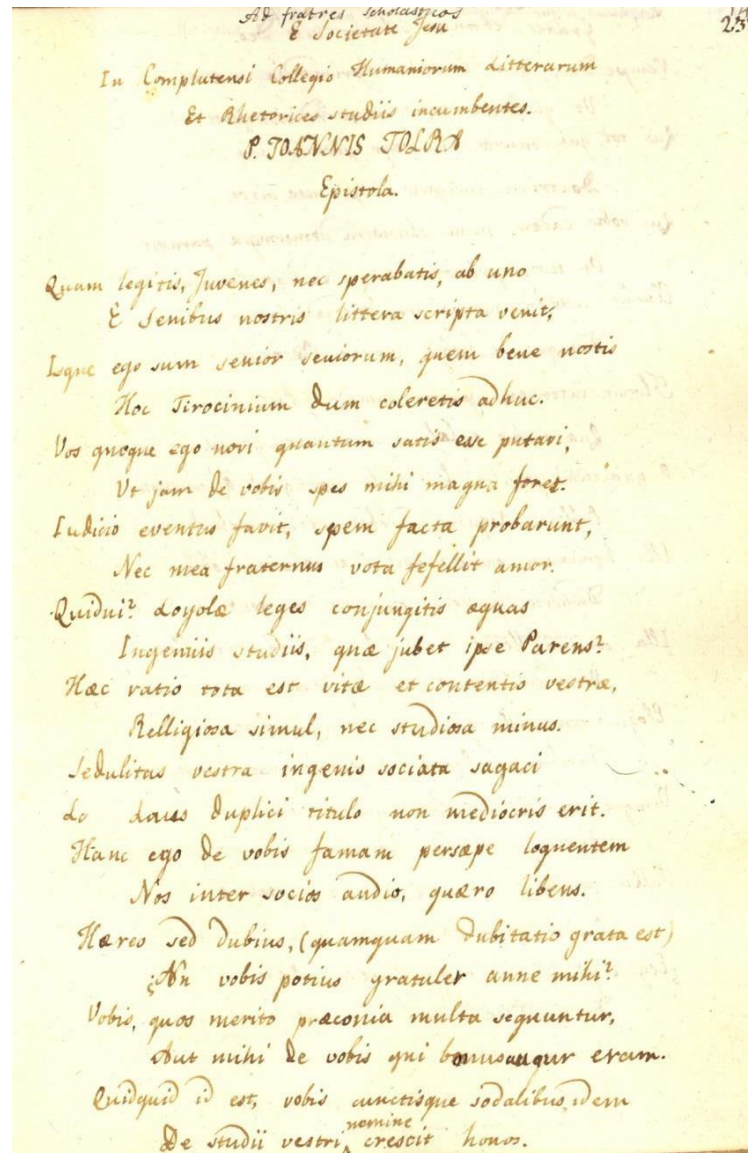 Ad fratres scholasticos
E Societate Jesu
23
In Complutensi Collegio Humaniorum Litterarum
Et Rhetorices studiis incumbentes.
P. JOANNIS TOLRA
Epistola.
Quam legitis, Juvenes, nec sperabatis, ab uno
E Senibus nostris littera scripta venit,
Isque ego sum senior seniorum, quem bene nostis
Hoc Tirocinium dum coleretis adhuc.
Vos quoque ego novi quantum satis esse putavi,
Ut jam de vobis spes mihi magna foret.
Iudicio eventus favit, spem facta probarunt,
Nec mea fraternus vota fefellit amor.
Quidni? Loyolæ leges conjungitis æquas
Ingeniis studiis, quæ jubet ipse Parens?
Hæc ratio tota est vitæ et contentio vestræ,
Relligiosa simul, nec studiosa minus.
Sedulitas vestra ingenis sociata sagaci
Laus duplici titulo non mediocris erit.
Hanc ego de vobis famam persæpe loquentem
Nos inter socios audio, quæro libens.
Hæreo sed dubius, (quamquam dubitatio grata est)
¿An vobis potius gratuler anne mihi?
Vobis, quos merito præconia multa sequuntur,
Aut mihi de vobis qui bonus augur eram.
Quidquid id est, vobis cunctisque sodalibus idem
nomine
De studii vestri crescit honos.